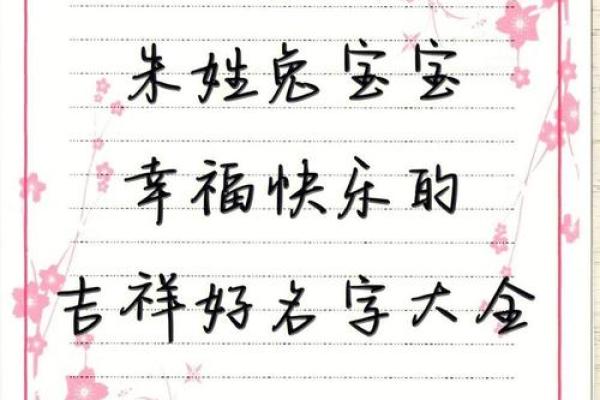 朱姓兔宝宝
幸福快乐的
吉祥好名字大全